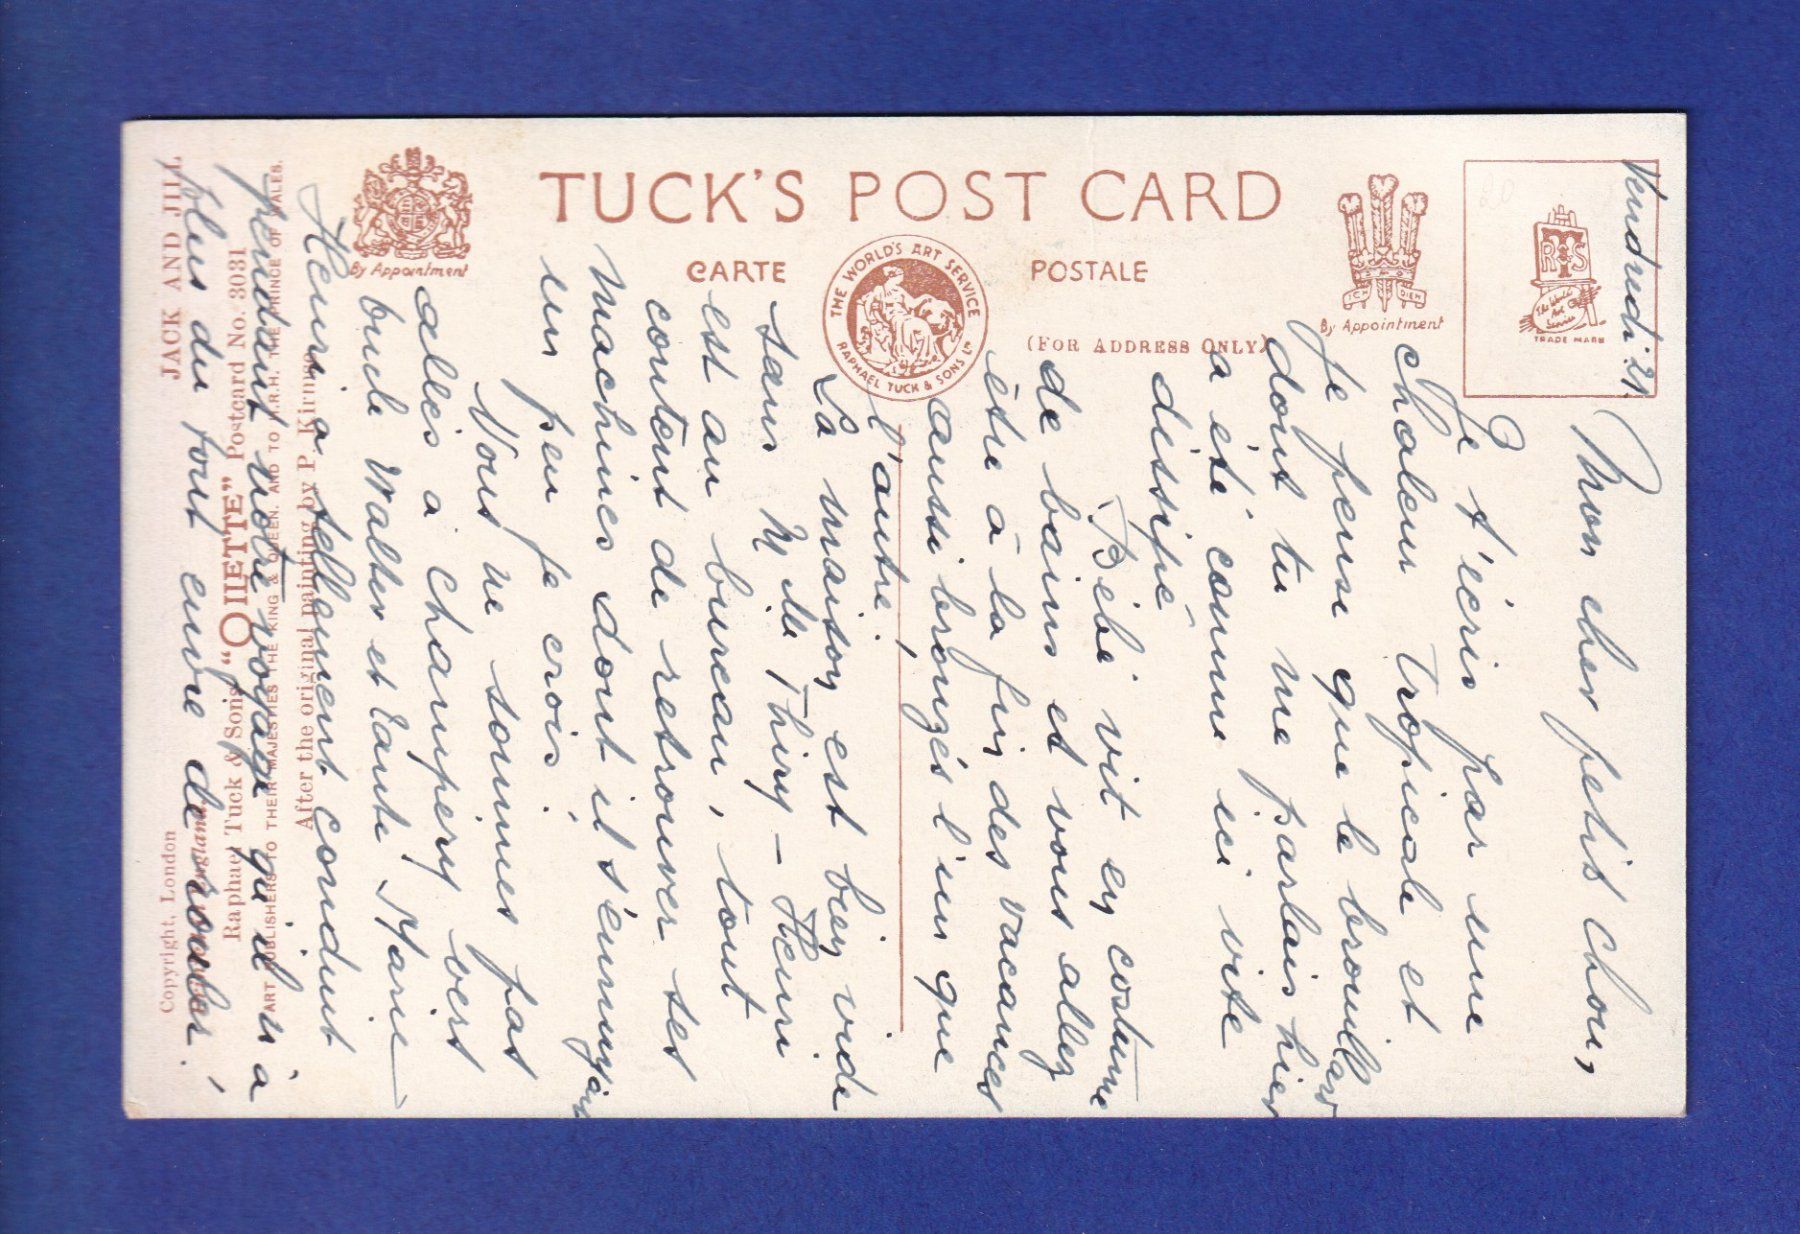 TUCK'S POST CARD
CARTE POSTALE
(FOR ADDRESS ONLY)
By Appointment
THE WORLD'S ART SERVICE
RAPHAEL TUCK & SONS LTD
ICH DIEN
By Appointment
RTS
The World's Art Service
TRADE MARK
20
Vendredi 21.
Mon cher petit chou,
Je t'écris par une
chaleur tropicale et
je pense que le brouillard
dont tu me parlais hier
a été comme ici vite
dissipé
Bébé vit en costume
de bains et vous allez
être à la fin des vacances
aussi bronzés l'un que
l'autre!
La maison est bien vide
sans M. Mlle Thiry - Henri
est au bureau, tout
content de retrouver ses
machines dont il s'ennuyait
un peu je crois.
Nous ne sommes pas
allés à Champery vers
Oncle Walter et Tante Marie
Henri a tellement conduit
pendant notre voyage qu'il n'a
plus du tout envie de rouler!
JACK AND JILL
Copyright, London
Raphael Tuck & Sons' "OILETTE" Postcard No. 3031
ART PUBLISHERS TO THEIR MAJESTIES THE KING & QUEEN, AND TO H.R.H. THE PRINCE OF WALES.
After the original painting by P. Kirmse